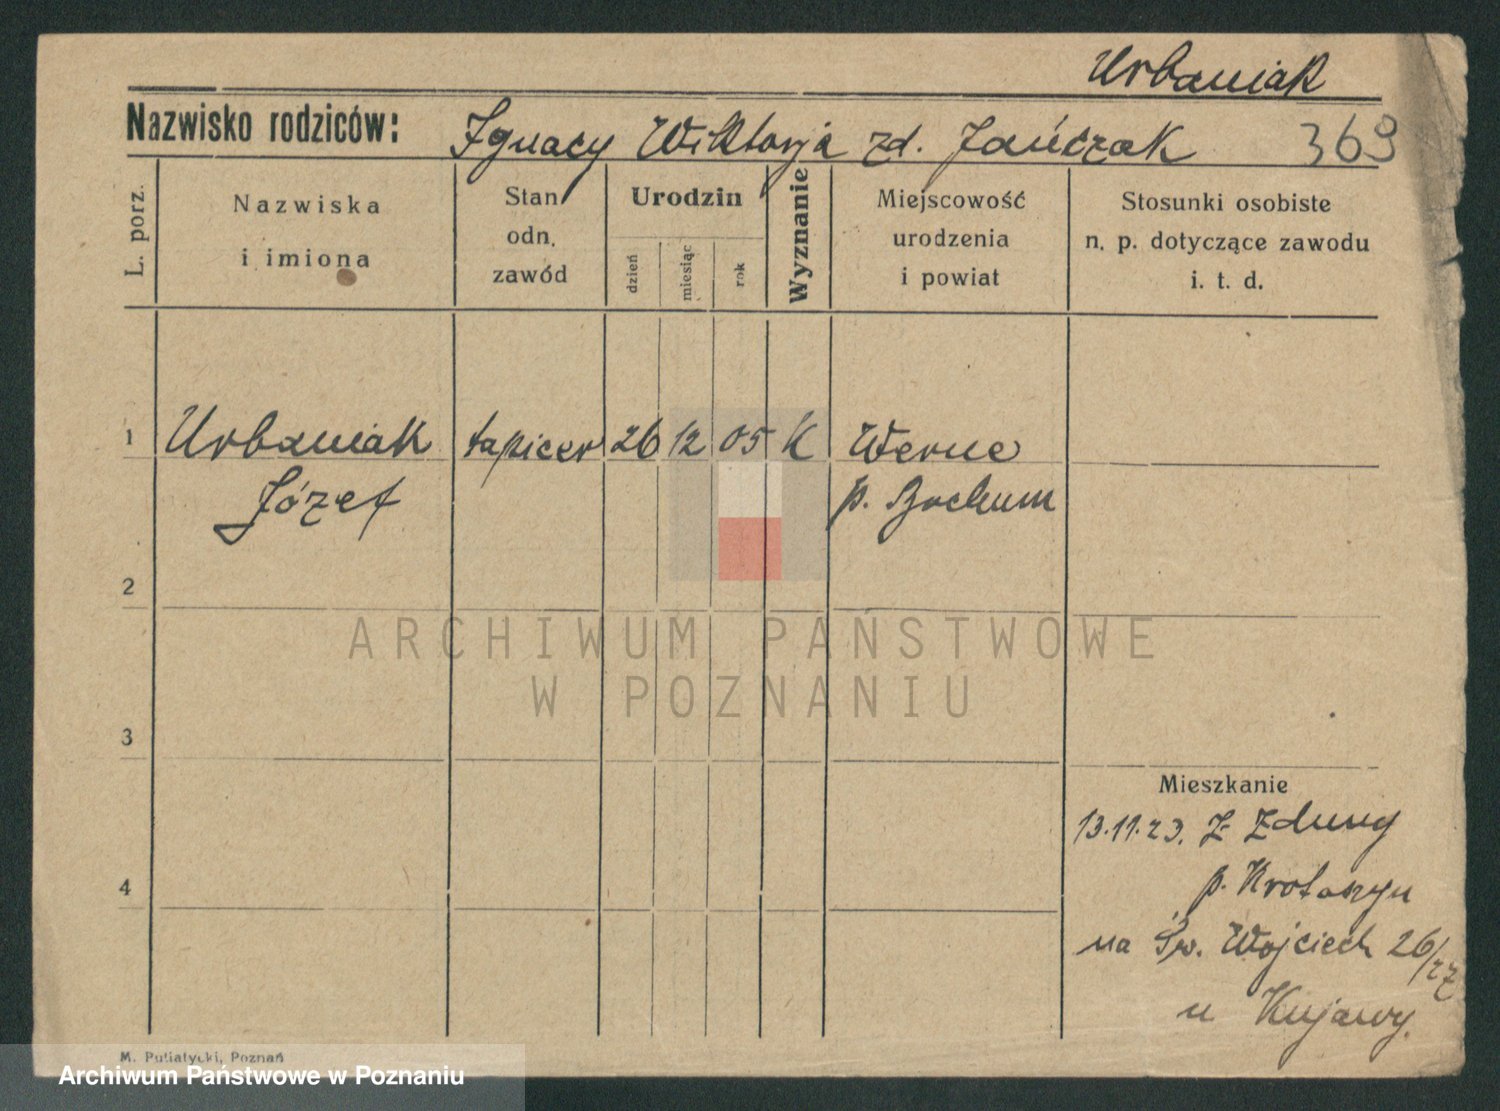 Urbaniak
Nazwisko rodziców: Ignacy Wiktorja zd. Jańczak 369
L. porz.
Nazwiska
i imiona
Stan
odn.
zawód
Urodzin
dzień
miesiąc
rok
Wyznanie
Miejscowość
urodzenia
i powiat
Stosunki osobiste
n. p. dotyczące zawodu
i. t. d.
1 Urbaniak tapicer 26 12 05 K Werne
Józef p. Bochum
2
ARCHIWUM PAŃSTWOWE
W POZNANIU
3
Mieszkanie
13.11.23. Z Zduny
p. Krotoszyn
4
na Św. Wojciech 26/27
u Kujawy.
M. Putiatycki, Poznań
Archiwum Państwowe w Poznaniu